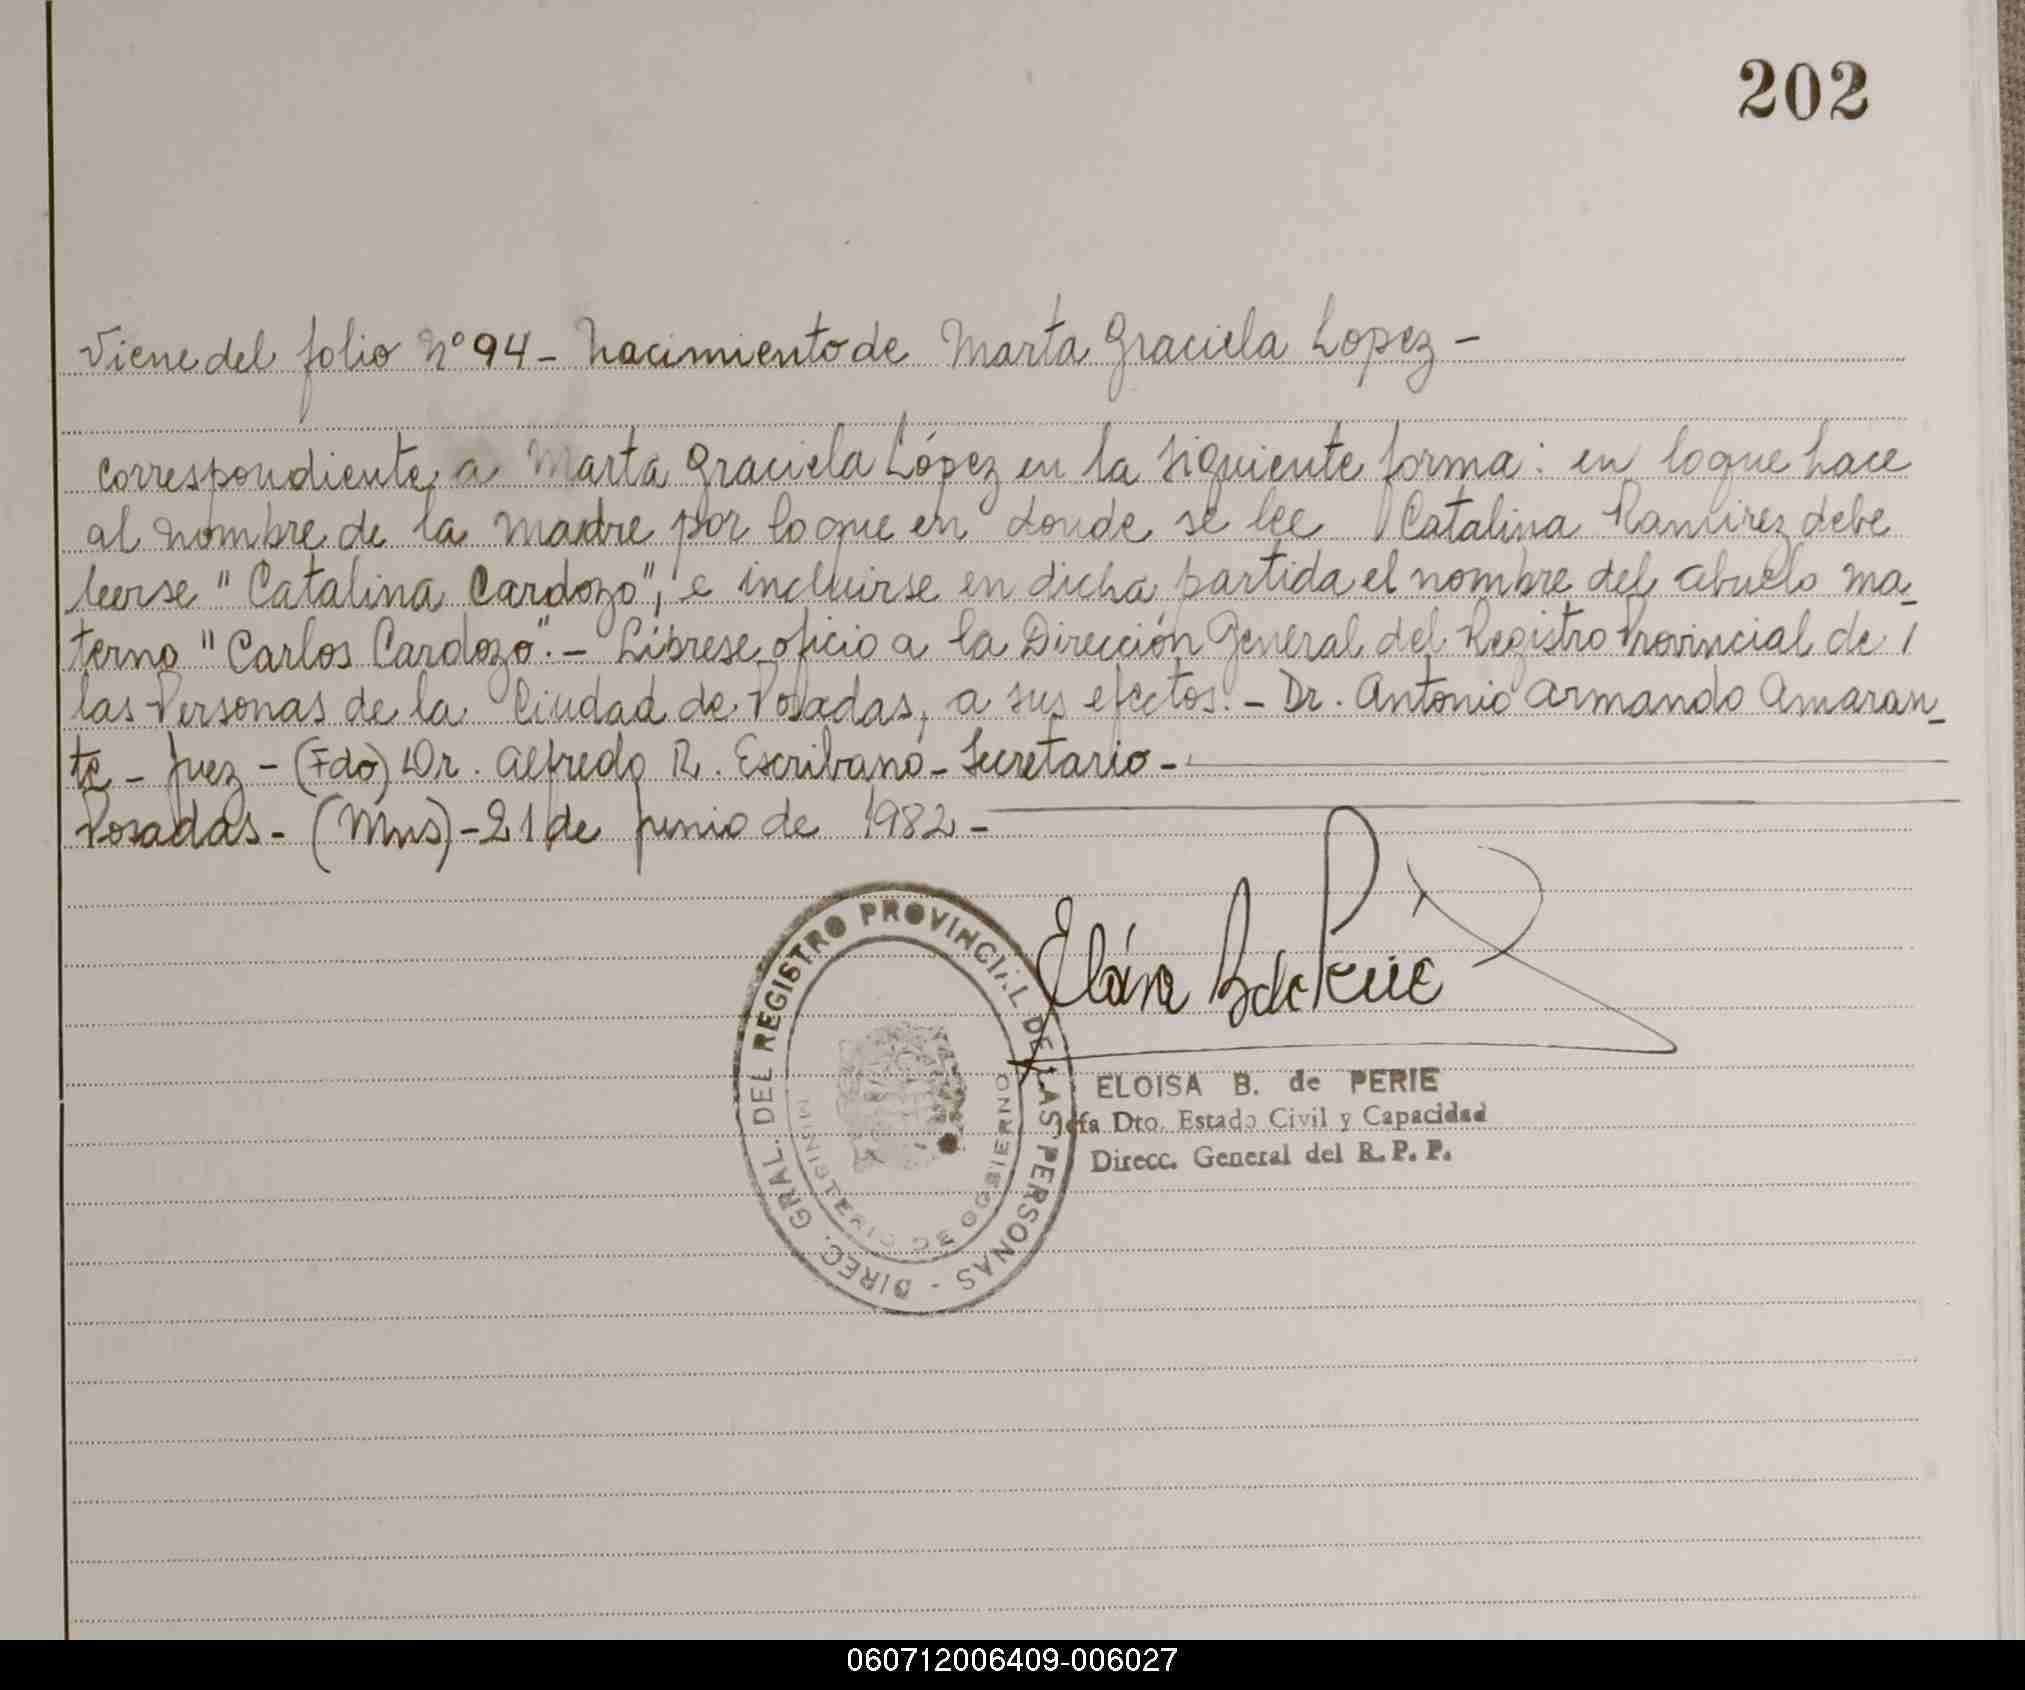 202
Viene del folio Nº 94 - Nacimiento de Marta Graciela Lopez -
correspondiente a Marta Graciela López en la siguiente forma: en lo que hace
al nombre de la madre por lo que en donde se lee Catalina Ramirez debe
leerse "Catalina Cardozo", e incluirse en dicha partida el nombre del abuelo ma-
terno "Carlos Cardozo". - Líbrese oficio a la Dirección General del Registro Provincial de /
las Personas de la Ciudad de Posadas, a sus efectos. - Dr. Antonio Armando Amaran-
te - Juez - (Fdo) Dr. Alfredo R. Escribano - Secretario -
Posadas - (Mns) - 21 de junio de 1982 -
DIREC. GRAL. DEL REGISTRO PROVINCIAL DE LAS PERSONAS -
MINISTERIO DE GOBIERNO
ELOISA B. de PERIE
Jefa Dto. Estado Civil y Capacidad
Direcc. General del R. P. P.
060712006409-006027